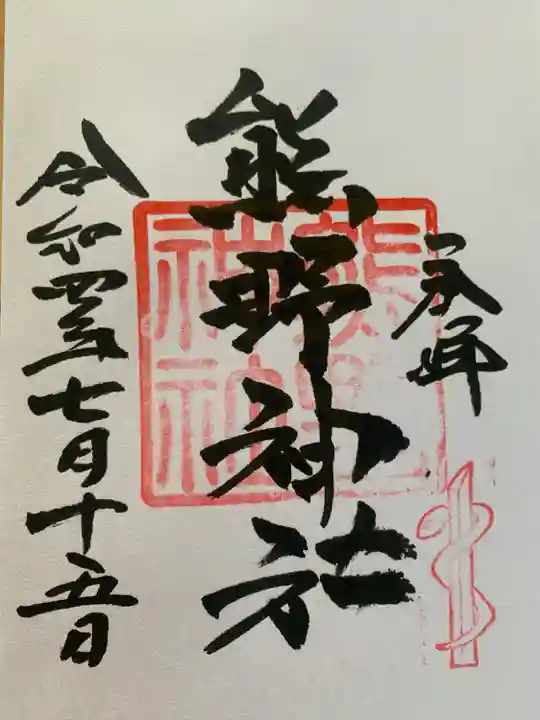 奉拝
熊野神社
令和四年七月十五日